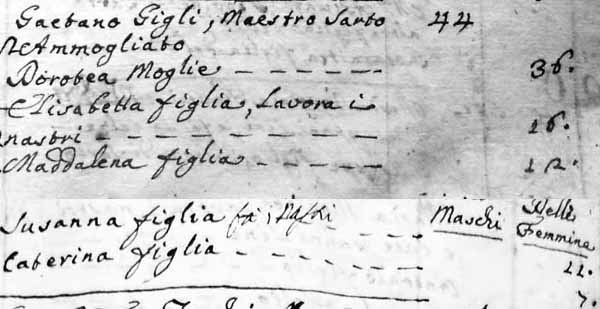 Gaetano Gigli, Maestro Sarto 44
Ammogliato
Dorotea Moglie - - - - - - 36.
Elisabetta figlia, Lavora i
nastri - - - - - - - - 16.
Maddalena figlia - - - - 12.
Maschi Delle
Femmina
Susanna figlia - - - 11.
Caterina figlia - - - - - - 7.